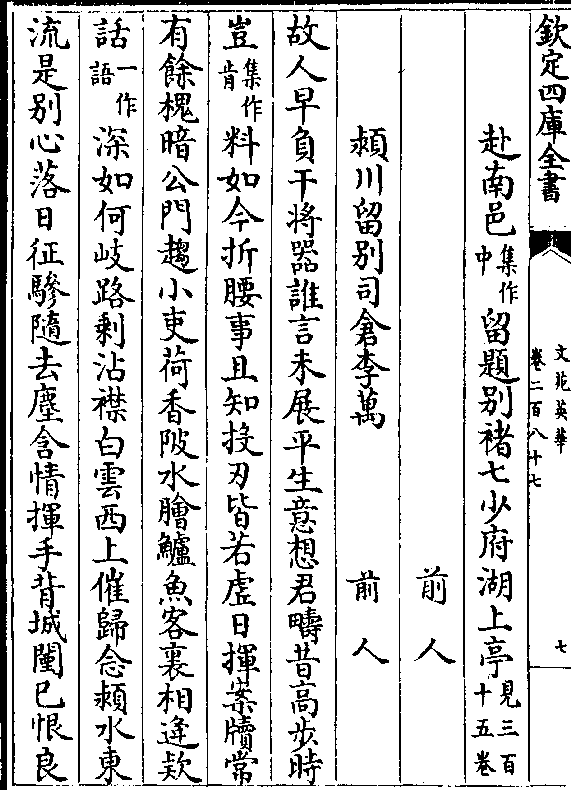 欽定四庫全書
文苑英華
卷二百八十七
七
赴南邑集作中留題別褚七少府湖上亭見三百十五卷
前人
潁川留別司倉李萬
前人
故人早負干將器誰言未展平生意想君疇昔高步時
豈集作肯料如今折腰事且知投刃皆若虛日揮案牘常
有餘槐暗公門趨小吏荷香陂水膾鱸魚客裏相逢欵
話一作語深如何岐路剩沾襟白雲西上催歸念潁水東
流是別心落日征驂隨去塵含情揮手背城闉已恨良